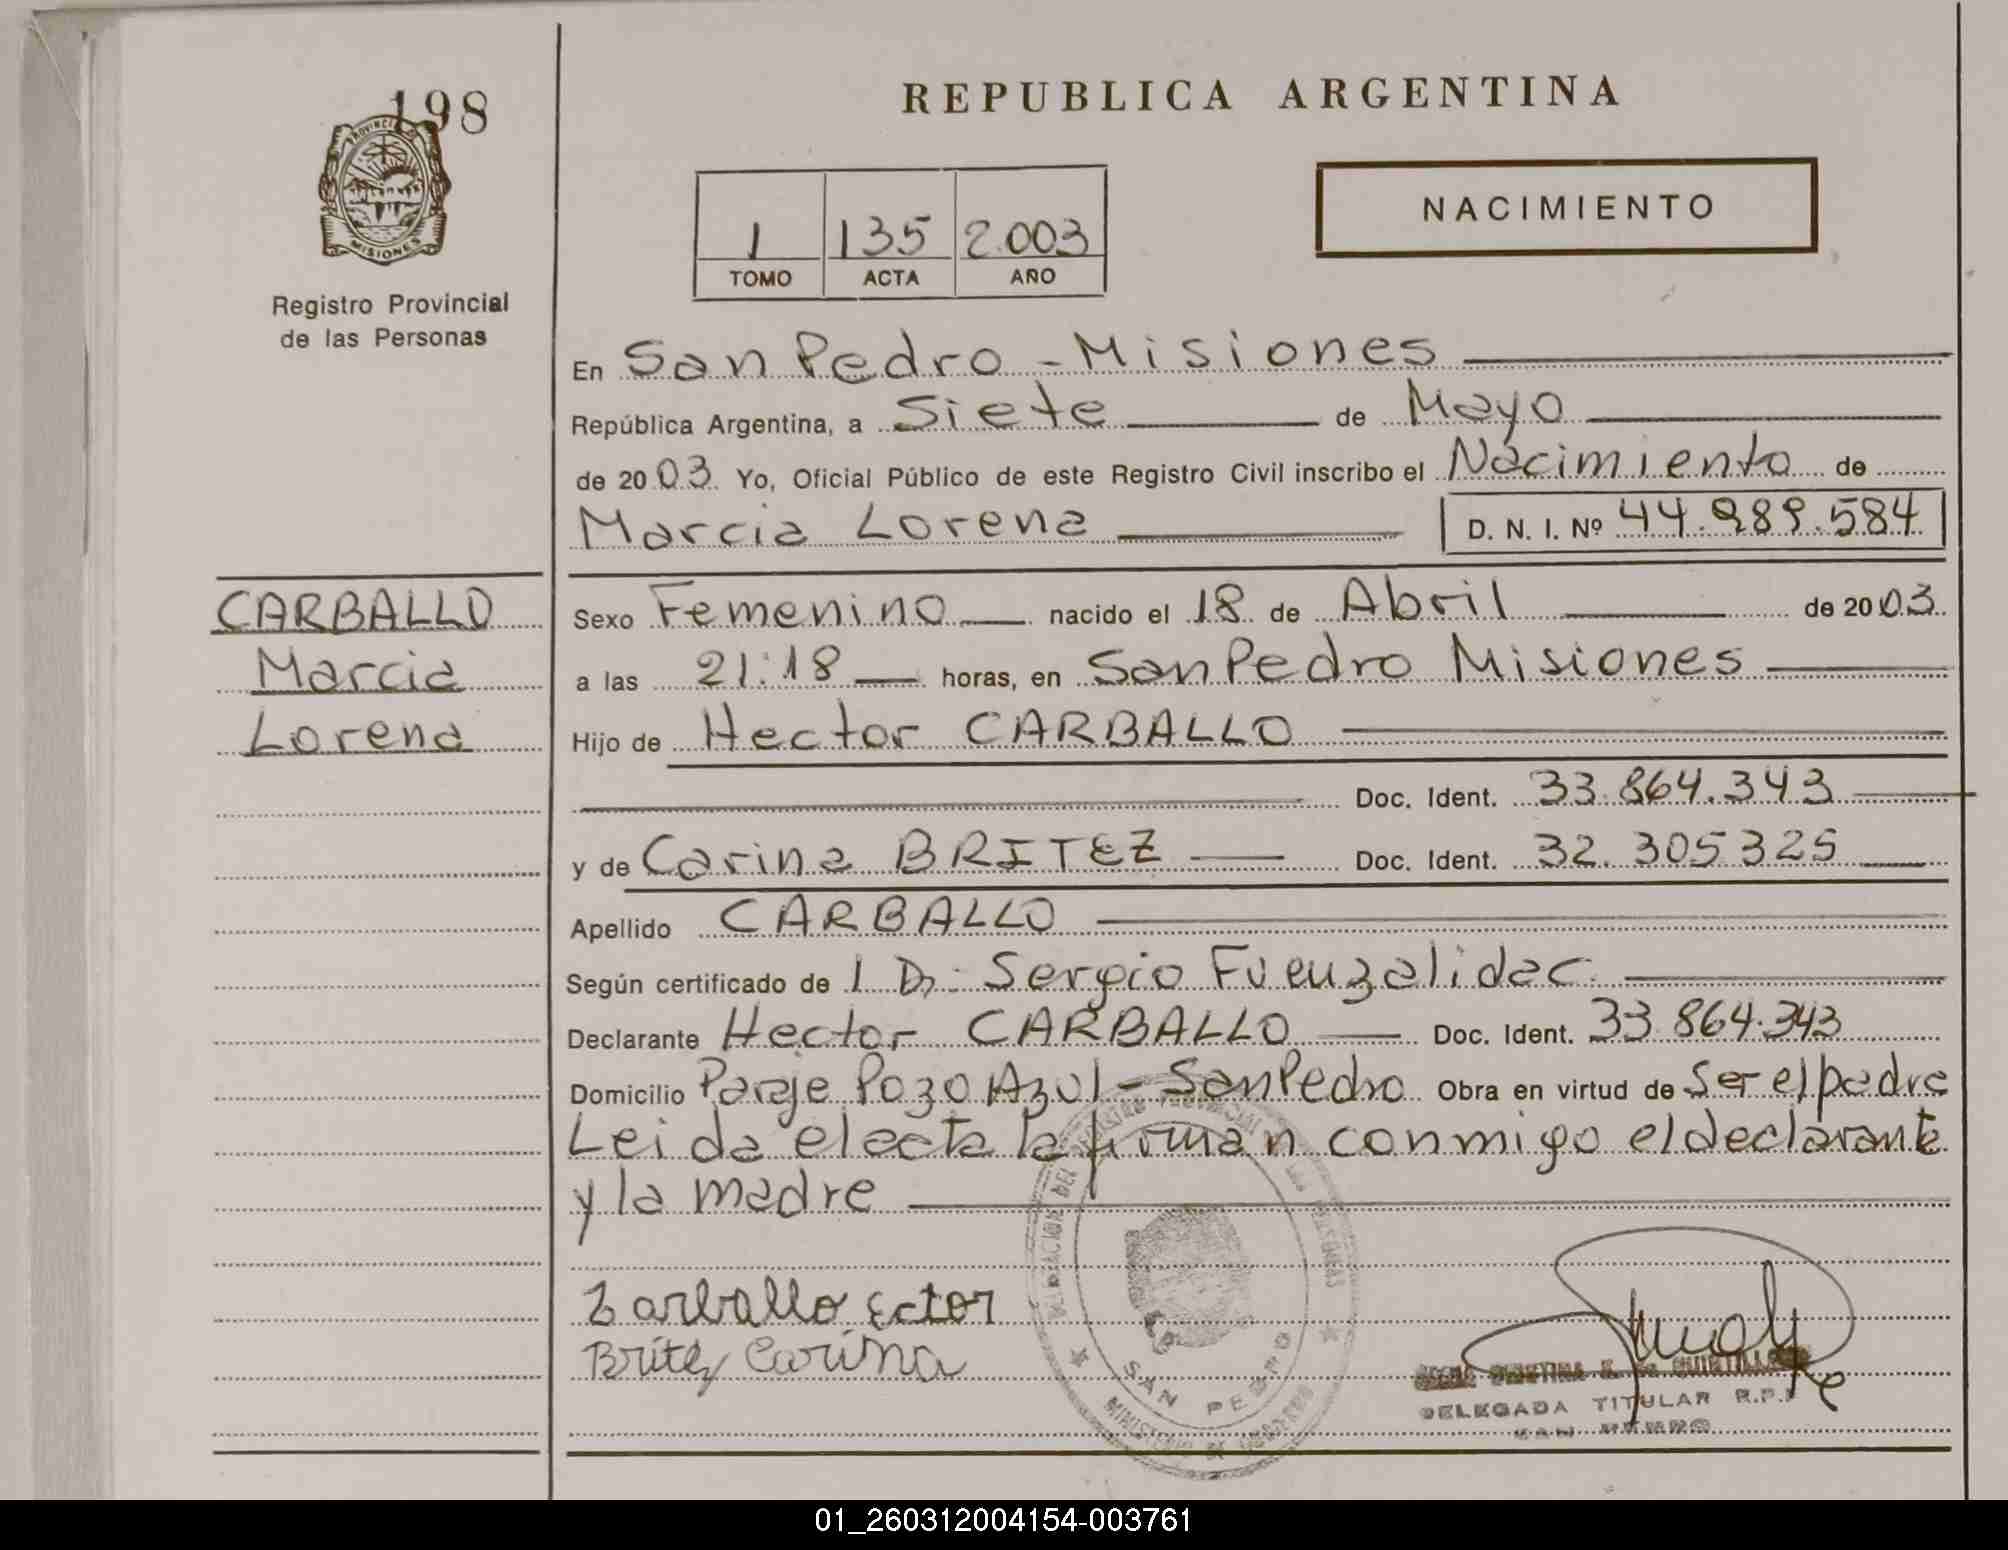 198
PROVINCIA DE
MISIONES
Registro Provincial
de las Personas
REPUBLICA ARGENTINA
1 135 2.003
TOMO ACTA AÑO
NACIMIENTO
En San Pedro - Misiones
República Argentina, a Siete de Mayo
de 2003 Yo, Oficial Público de este Registro Civil inscribo el Nacimiento de
Marcia Lorena D. N. I. Nº 44.989.584
CARBALLO
Marcia
Lorena
Sexo Femenino nacido el 18 de Abril de 2003
a las 21:18 horas, en San Pedro Misiones
Hijo de Hector CARBALLO
Doc. Ident. 33.864.343
y de Carina BRITEZ Doc. Ident. 32.305325
Apellido CARBALLO
Según certificado de Sergio
Declarante Hector CARBALLO Doc. Ident. 33.864.343
Domicilio Paraje Pozo Azul - San Pedro Obra en virtud de Ser el padre
Leida el acta la firman conmigo el declarante
y la madre
Carballo Ector
Britez Carina
SAN PEDRO
MINISTERIO DE GOBIERNO
DELEGADA TITULAR R.P.
SAN PEDRO
01_260312004154-003761